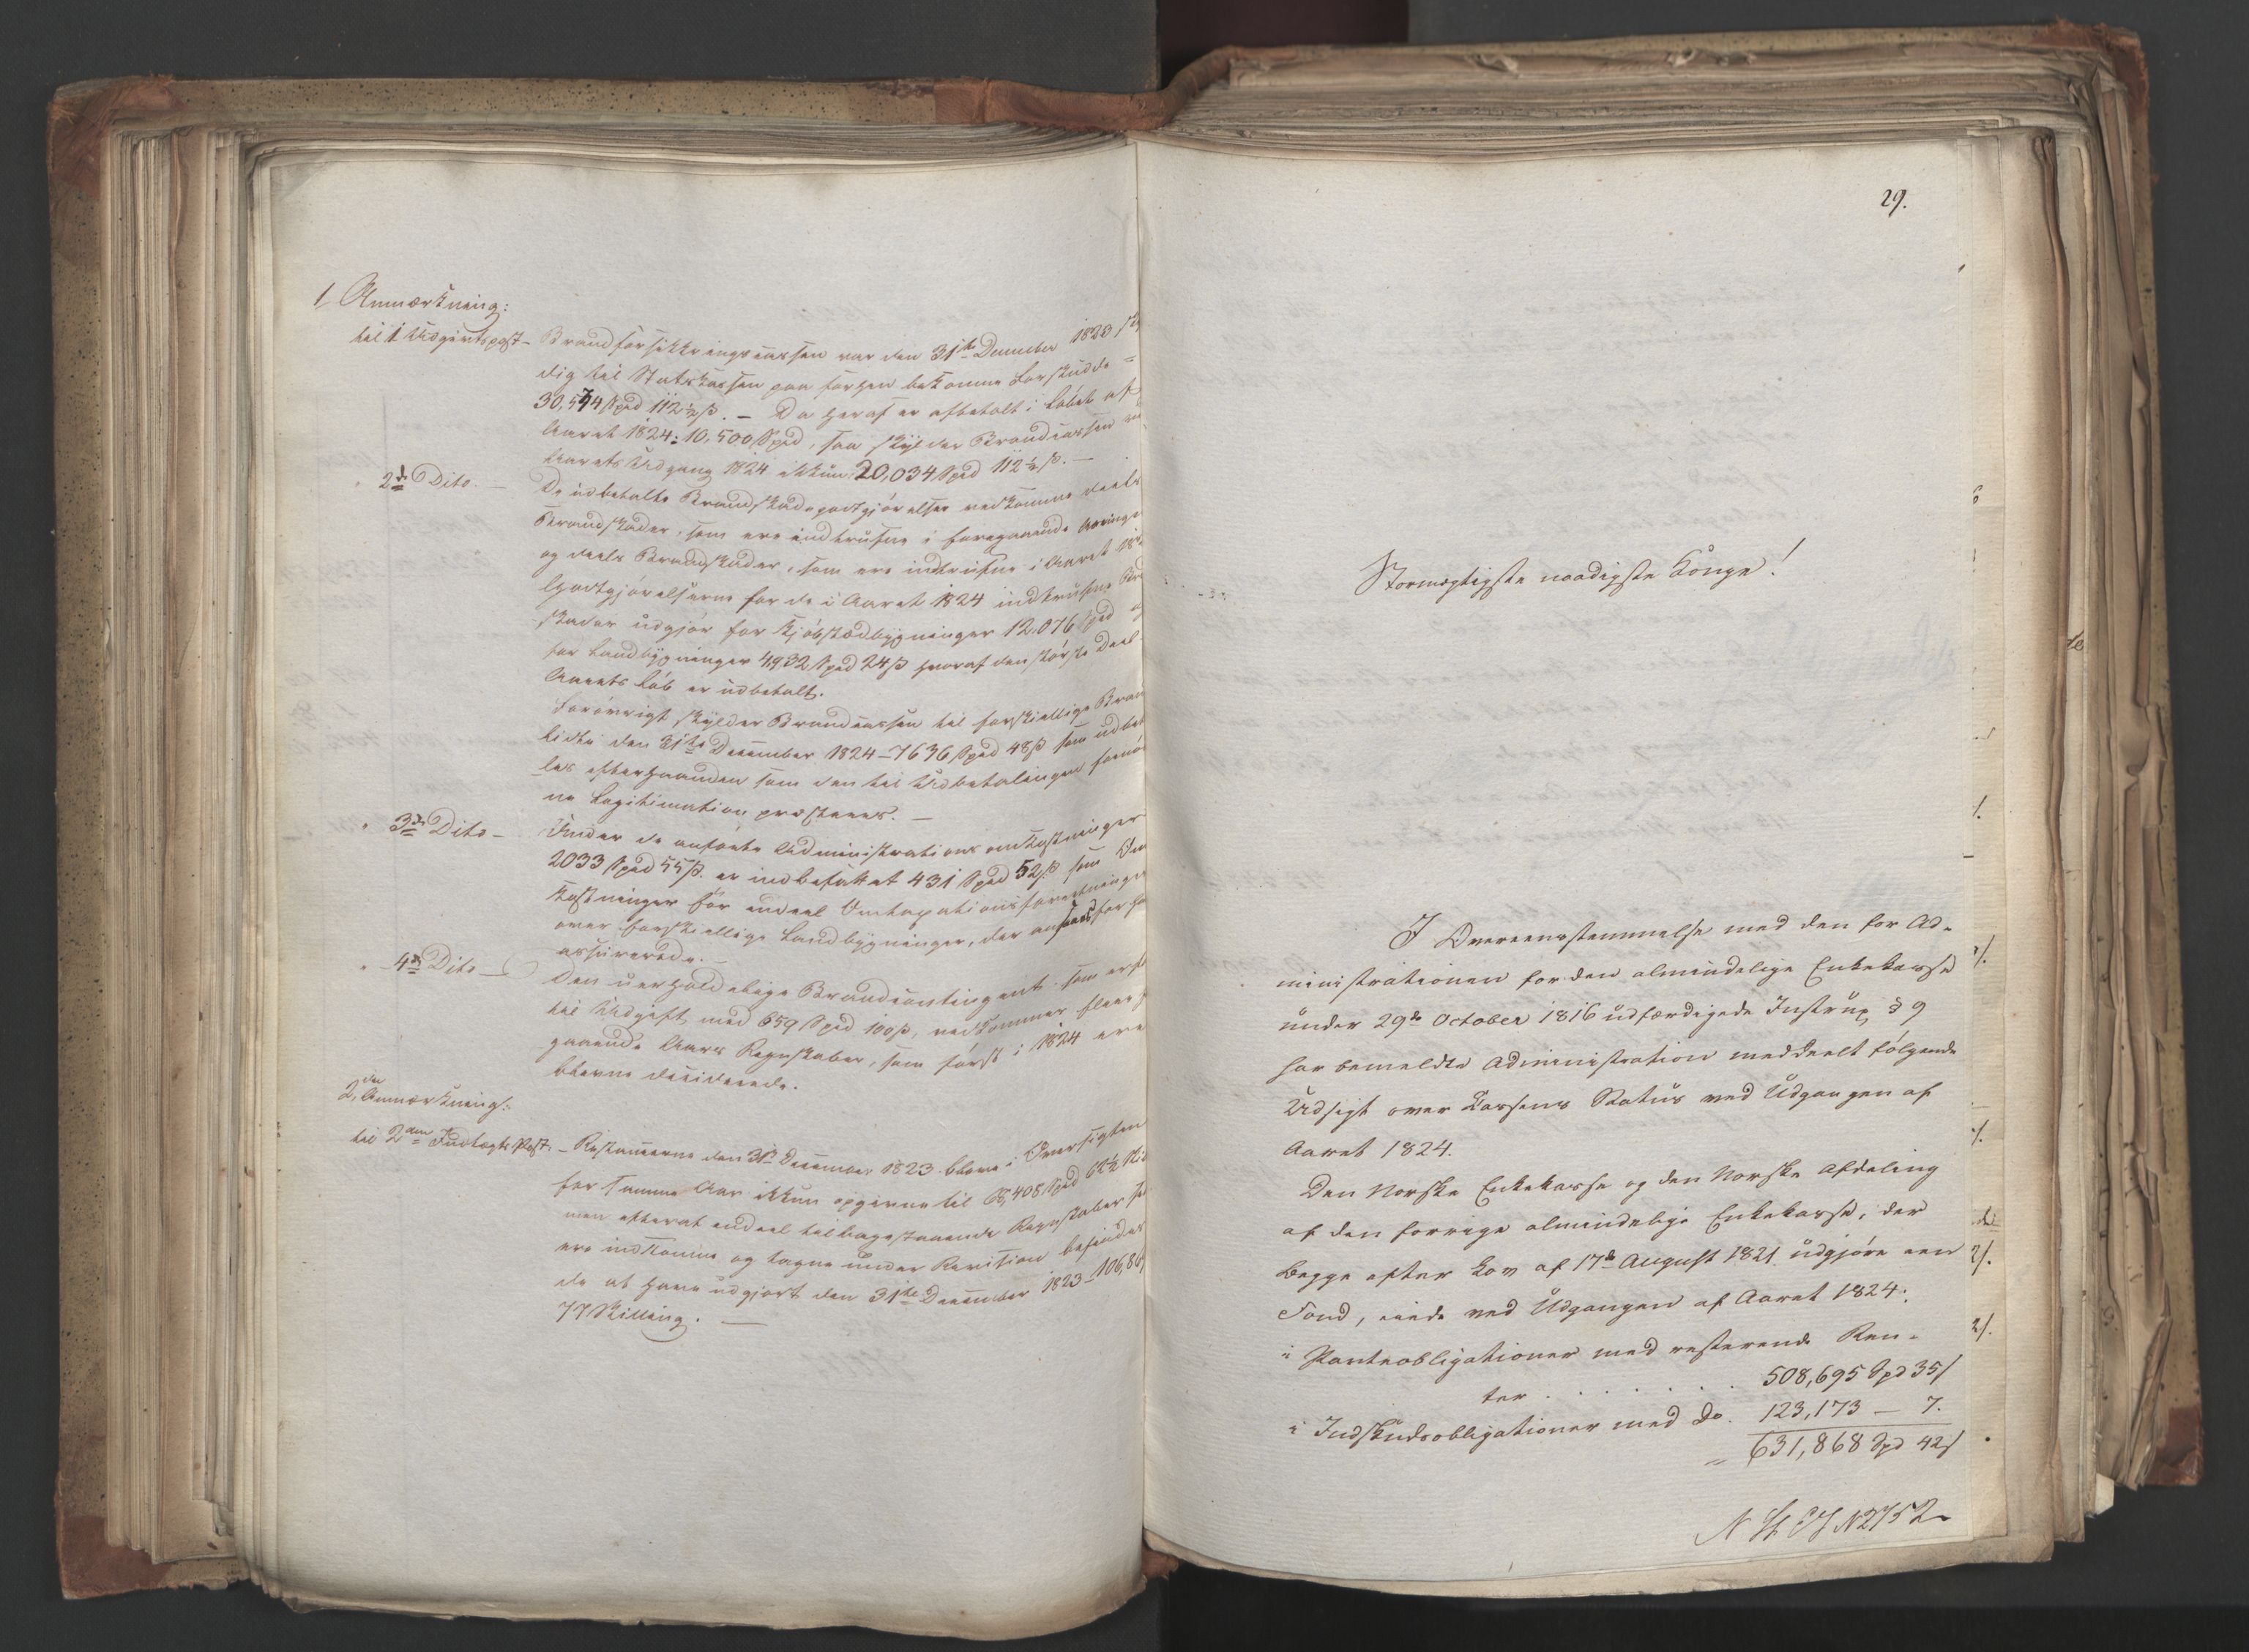 1, Anmærkning:
til 1 Udgivtspost – Brandforsikkringscassen var den 31te December 1823 skyl
dig til Statskassen paa forhen bekomne Forskudde =
30,534 Spd 112½ s. – Da heraf er afbetalt i Løbet af
Aaret 1824: 10,500 Spd, saa skylder Brandcassen ve
Aarets Udgang 1824 ikkun 20,034 Spd 112½ s. –
2de Dito. – De udbetalte Brandskadegodtgjørelser vedkomme deels
Brandskader, som ere indtrufne i foregaaende Aaringe
og deels Brandskader, som ere indtrufne i Aaret 182
Godtgjørelserne for de i Aaret 1824 indtrufne Bra
skader udgjør for Kjøbstædbygninger 12,076 Spd og
for Landbygninger 4932 Spd 24 s hvoraf den største Deel
Aarets Løb er udbetalt.
Forøvrigt skylder Brandcassen til forskiellige Bran
lidte den 31te December 1824 – 7636 Spd 48 s som udbet
les efterhaanden som den til Udbetalingen fornø
ne Legitimation præsteres. –
3de Dito – Under de anførte Administrations omkostninger
2033 Spd 55 s. er indbefattet 431 Spd 52 s som Om
kostninger for endeel Omtaxationsforretninger
over forskiellige Landbygninger, der ansaaes for hø
assurerede. –
4de Dito – Den uerholdelige Brandcontingent som er f
til Udgift med 659 Spd 100 s, vedkommer fleere f
gaaende Aars Regnskaber, som først i 1824 ere
blevne deciderede.
2den Anmærkning:
til 2den Indtægts Post – Restancerne den 31te December 1823 bleve i Oversigten
for samme Aar ikkun opgivne til 408 Spd 68½ Sk
men efterat endeel tilbagestaaende Regnskaber
ere indkomne og tagne under Revision befindes
de at have udgjort den 31te December 1823 – 106,86
77 Skilling. –
29.
Stormægtigste naadigste Konge!
I Overeensstemmelse med den for Ad-
ministrationen for den almindelige Enkekasse
under 29de October 1816 udfærdigede Instrux § 9
har bemeldte Administration meddeelt følgende
Udsigt over Cassens Status ved Udgangen af
Aaret 1824.
Den Norske Enkekasse og den Norske Afdeling
af den forrige almindelige Enkekasse, der
begge efter Lov af 17de August 1821 udgjøre een
Fond, eiede ved Udgangen af Aaret 1824:
i Panteobligationer med resterende Ren-
ter . . . . . . 508,695 Spd 35 s
i Indskudsobligationer med do. 123,173 – 7.
= 631,868 Spd 42 s